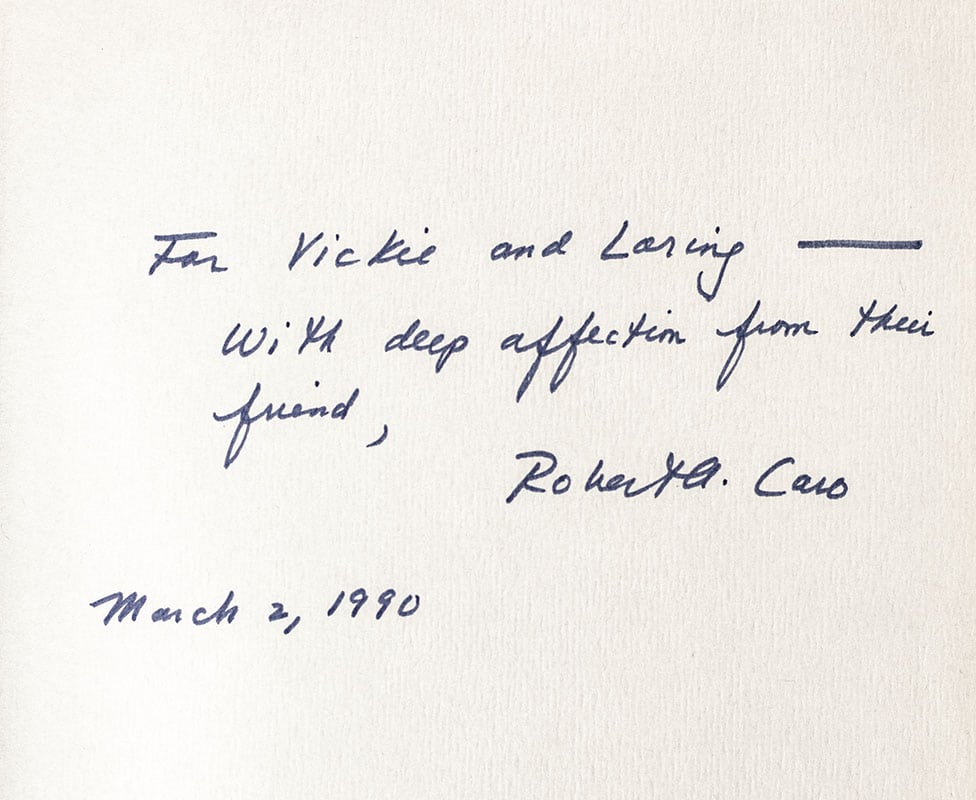 For Vickie and Loring —
With deep affection from their
friend,
Robert A. Caro
March 2, 1990